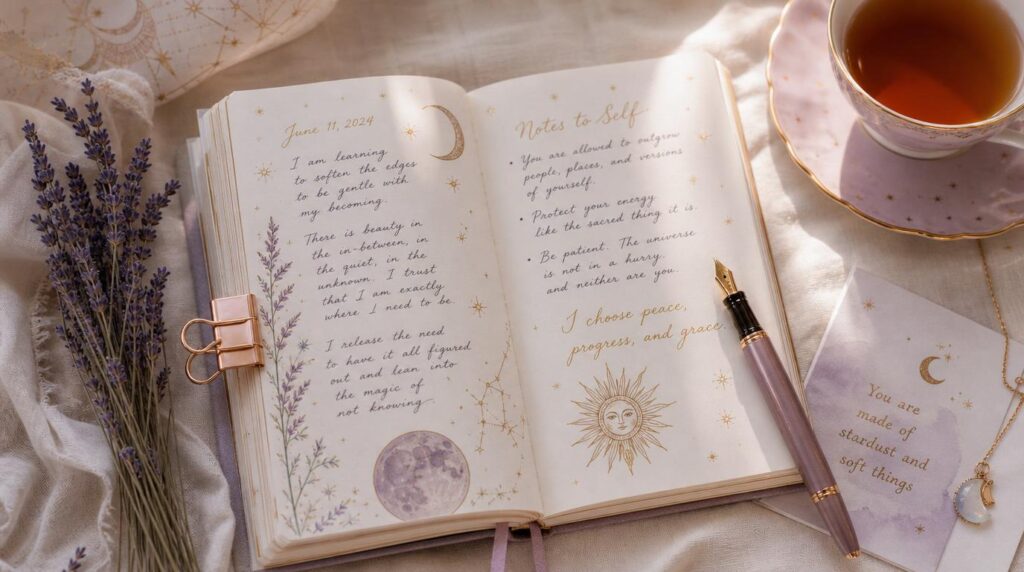 June 11, 2024
I am learning
to soften the edges
to be gentle with
my becoming.
There is beauty in
the in-between, in
the quiet, in the
unknown. I trust
that I am exactly
where I need to be.
I release the need
to have it all figured
out and lean into
the magic of
not knowing
Notes to Self
• You are allowed to outgrow
people, places, and versions
of yourself.
• Protect your energy
like the sacred thing it is.
• Be patient. The universe
is not in a hurry.
and neither are you.
I choose peace,
progress, and grace.
You are
made of
stardust and
soft things